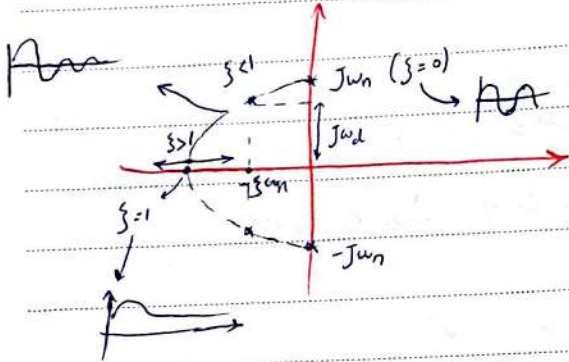 ξ<1
Jωn
(ξ=0)
Jωd
ξ>1
-ξωn
ξ=1
-Jωn